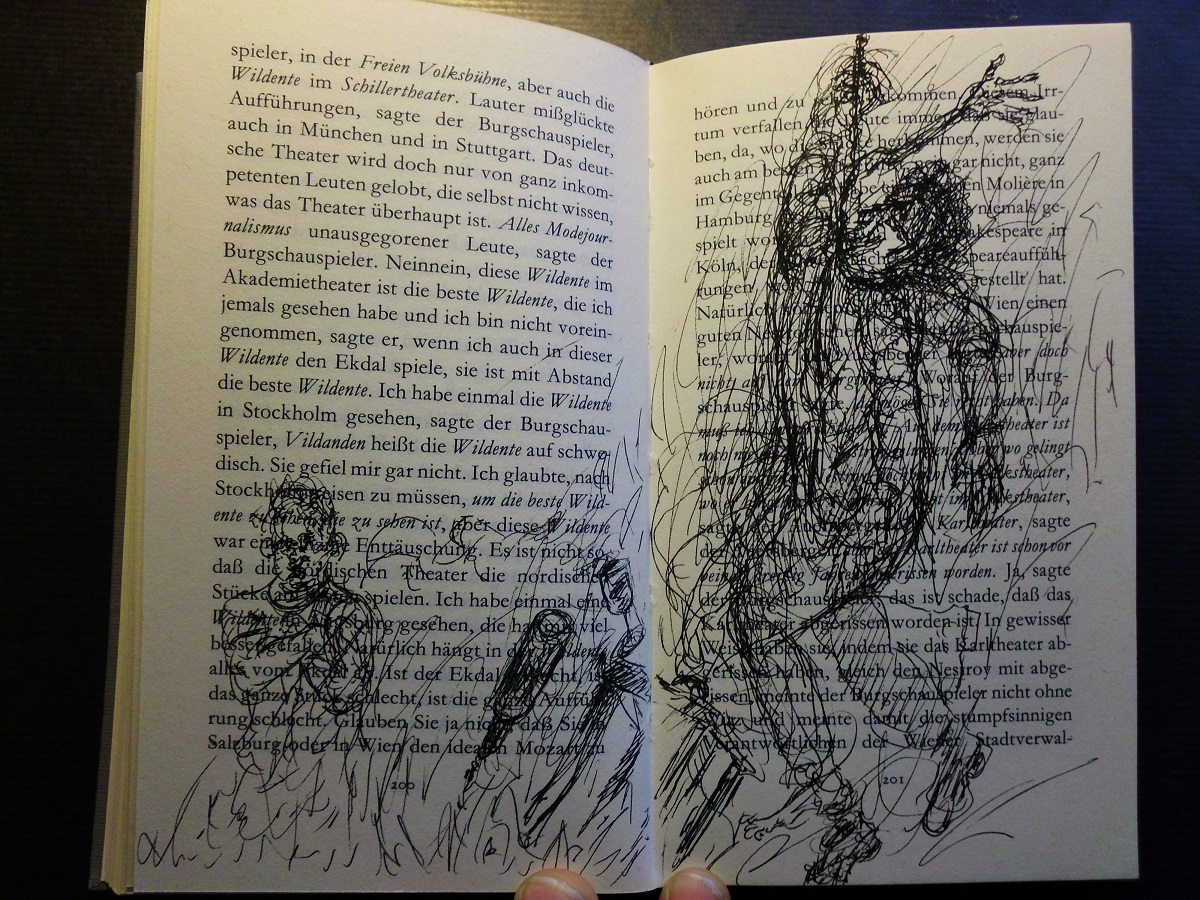 spieler, in der Freien Volksbühne, aber auch die
Wildente im Schillertheater. Lauter mißglückte
Aufführungen, sagte der Burgschauspieler,
auch in München und in Stuttgart. Das deut-
sche Theater wird doch nur von ganz inkom-
petenten Leuten gelobt, die selbst nicht wissen,
was das Theater überhaupt ist. Alles Modejour-
nalismus unausgegorener Leute, sagte der
Burgschauspieler. Neinnein, diese Wildente im
Akademietheater ist die beste Wildente, die ich
jemals gesehen habe und ich bin nicht vorein-
genommen, sagte er, wenn ich auch in dieser
Wildente den Ekdal spiele, sie ist mit Abstand
die beste Wildente. Ich habe einmal die Wildente
in Stockholm gesehen, sagte der Burgschau-
spieler, Vildanden heißt die Wildente auf schwe-
disch. Sie gefiel mir gar nicht. Ich glaubte, nach
Stockholm reisen zu müssen, um die beste Wild-
ente zu sehen, die zu sehen ist, aber diese Wildente
war eine Enttäuschung. Es ist nicht so,
daß die nordischen Theater die nordischen
Stücke am besten spielen. Ich habe einmal eine
Wildente in Augsburg gesehen, die hat mir viel
besser gefallen. Natürlich hängt in der Wildente
alles vom Ekdal ab. Ist der Ekdal schlecht, ist
das ganze Stück schlecht, ist die ganze Auffüh-
rung schlecht. Glauben Sie ja nicht, daß Sie in
Salzburg oder in Wien den idealen Mozart zu
200
hören und zu bekommen. Diesem Irr-
tum verfallen die Leute immer, daß sie glau-
ben, da, wo die herkommen, werden sie
auch am besten gar nicht, ganz
im Gegenteil, habe Molière in
Hamburg niemals ge-
spielt Shakespeare in
Köln, der speareauffüh-
rungen gestellt hat.
Natürlich Wien einen
guten Nestroy sagte der Burgschauspie-
ler, worauf der aber doch
nicht auf dem Burgtheater. Worauf der Burg-
schauspieler sagte, da mögen Sie recht haben. Da
muß ich theater ist
noch nie wo gelingt
theater,
Volkstheater,
sagte der Karltheater, sagte
der Karltheater ist schon vor
dreißig Jahren abgerissen worden. Ja, sagte
der Burgschauspieler, das ist schade, daß das
Karltheater abgerissen worden ist. In gewisser
Weise haben sie, indem sie das Karltheater ab-
gerissen haben, gleich den Nestroy mit abge-
rissen, meinte der Burgschauspieler nicht ohne
Witz und meinte damit die stumpfsinnigen
Verantwortlichen der Wiener Stadtverwal-
201